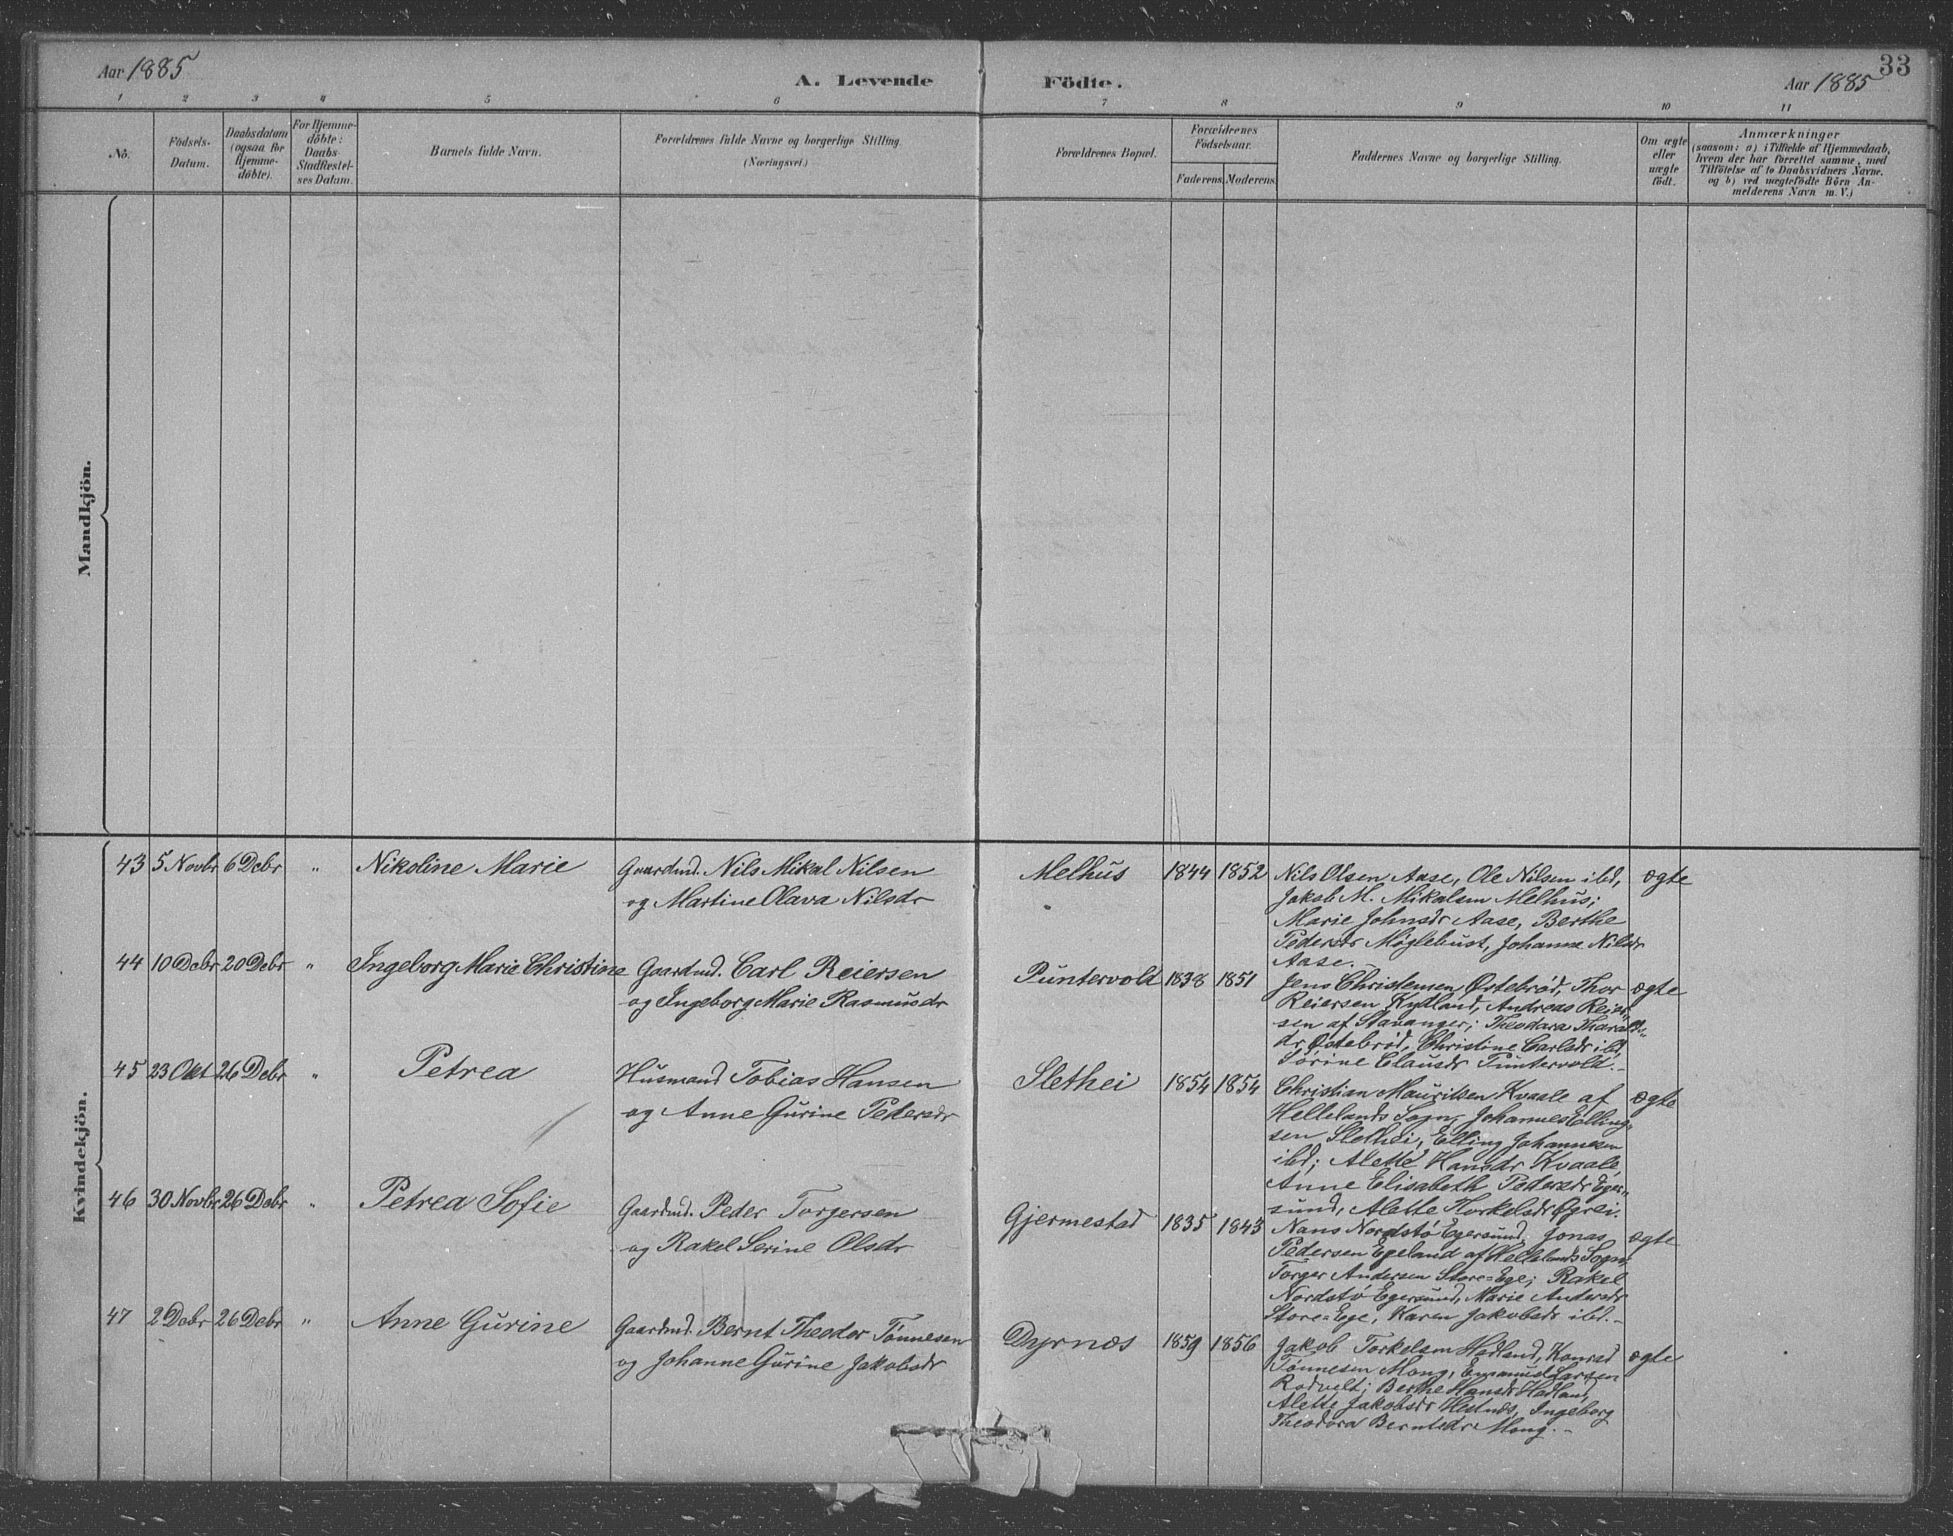 Aar 1885
A. Levende Födte.
Aar 1885
33
1 2 3 4 5 6 7 8 9 10 11
No.
Födsels-Datum.
Daabsdatum (ogsaa for Hjemmedöbte).
For Hjemmedöbte: Daabs-Stadfæstelses Datum.
Barnets fulde Navn.
Forældrenes fulde Navne og borgerlige Stilling.
(Næringsvei.)
Forældrenes Bopæl.
Forældrenes Födselsaar.
Faderens. Moderens.
Faddernes Navne og borgerlige Stilling.
Om ægte eller uægte födt.
Anmærkninger
(saasom: a) i Tilfælde af Hjemmedaab,
hvem der har forrettet samme, med
Tilföielse af to Daabsvidners Navne,
og b) ved uægtefödte Börn Anmelderens Navn m. V.)
Mandkjön.
Kvindekjön.
43 5 Novbr 6 Debr " Nikoline Marie
Gaardmd. Nils Mikal Nilsen
og Martine Olava Nilsdr
Melhus 1844 1852
Nils Olsen Aase, Ole Nilsen ibd,
Jakob M. Mikalsen Melhus;
Marie Johnsdr Aase, Berthe
Pedersdr Møglebust, Johanne Nilsdr
Aase.
ægte
44 10 Debr 20 Debr " Ingeborg Marie Christine
Gaardmd. Carl Reiersen
og Ingeborg Marie Rasmusdr
Puntervold 1838 1851
Jens Christensen Østebrød, Thor
Reiersen Kydland, Andreas Reier-
sen af Stavanger; Theodora Tharalds-
dr Østebrød, Christine Carlsdr ibd,
Sørine Clausdr Puntervold.
ægte
45 23 Okt 26 Debr " Petrea
Husmand Tobias Hansen
og Anne Gurine Pedersdr
Slethei 1854 1854
Christian Mauritsen Kvaale af
Hellelands Sogn, Johannes Elling-
sen Slethei, Elling Johannesen
ibd; Alette Hansdr Kvaale,
Anne Elisabeth Pedersdr Eger-
sund, Alette Torkelsdr Egrei.
ægte
46 30 Novbr 26 Debr " Petrea Sofie
Gaardmd. Peder Torgersen
og Rakel Serine Olsdr
Gjermestad 1835 1843
Hans Nordstø Egersund, Jonas
Pedersen Egeland af Hellelands Sogn,
Torger Andersen Store-Ege; Rakel
Nordstø Egersund, Marie Andersdr
Store-Ege, Karen Jakobsdr ibd.
ægte
47 2 Debr 26 Debr " Anne Gurine
Gaardmd. Bernt Theodor Tønnesen
og Johanne Gurine Jakobsdr
Dyrnæs 1859 1856
Jakob Torkelsen Hadland, Konrad
Tønnesen Mong, Emanuel Larsen
Rodvelt; Berthe Hansdr Hadland,
Alette Jakobsdr Hestnes, Ingeborg
Theodora Berntsdr Mong.
ægte